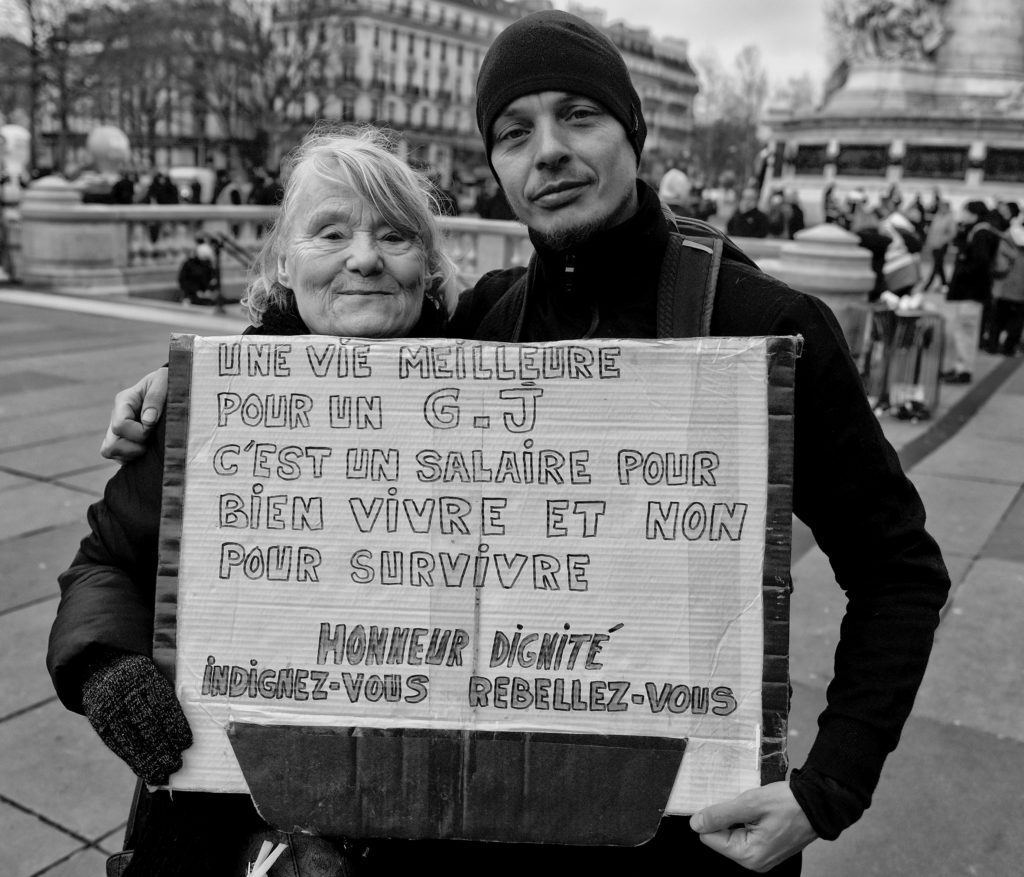 UNE VIE MEILLEURE
POUR UN G.J
C'EST UN SALAIRE POUR
BIEN VIVRE ET NON
POUR SURVIVRE
HONNEUR DIGNITÉ
INDIGNEZ-VOUS REBELLEZ-VOUS